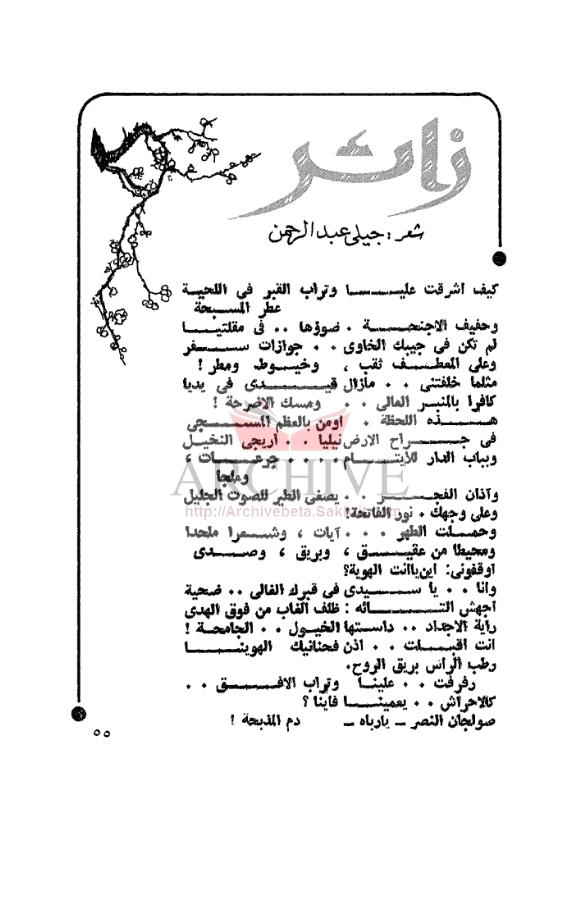 زائر
شعر : جيلى عبد الرحمن
كيف أشرقت علينا وتراب القبر فى اللحية
عطر المسبحة
وحفيف الاجنحة . ضوؤها . . فى مقلتينا
لم تكن فى جيبك الخاوى . . جوازات سفر
وعلى المعطف ثقب ، وخيوط ومطر !
مثلما خلفتنى . . مازال قيدى فى يديا
كافرا بالمنبر العالى . . ومسك الاضرحة !
هذه اللحظة . أومن بالعظم المسجى
فى جراح الارض نيليا . . أريجى النخيل
وبباب الدار للأيتام . . . . جرعات ،
وملجا
وآذان الفجر . . يصغى الطير للصوت الجليل
وعلى وجهك . نور الفاتحة!
وحملت الطهر . . . آيات ، وشعرا ملحدا
ومحيطا من عقيق ، وبريق ، وصدى
اوقفونى: اين باانت الهوية؟
وانا . . يا سيدى فى قبرك الغالى . . ضحية
أجهش التائه : ظلف الغاب من فوق الهدى
رأية الاجداد . . داستها الخيول . . الجامحة !
انت اقبلت . . اذن فحنانيك الهوينا
رطب الرأس بريق الروح.
رفرفت . . علينا وتراب الافق . .
كالاحراش . . يعمينا فأينا ؟
صولجان النصر – يارباه – دم المذبحة !
٥٥
ARCHIVE